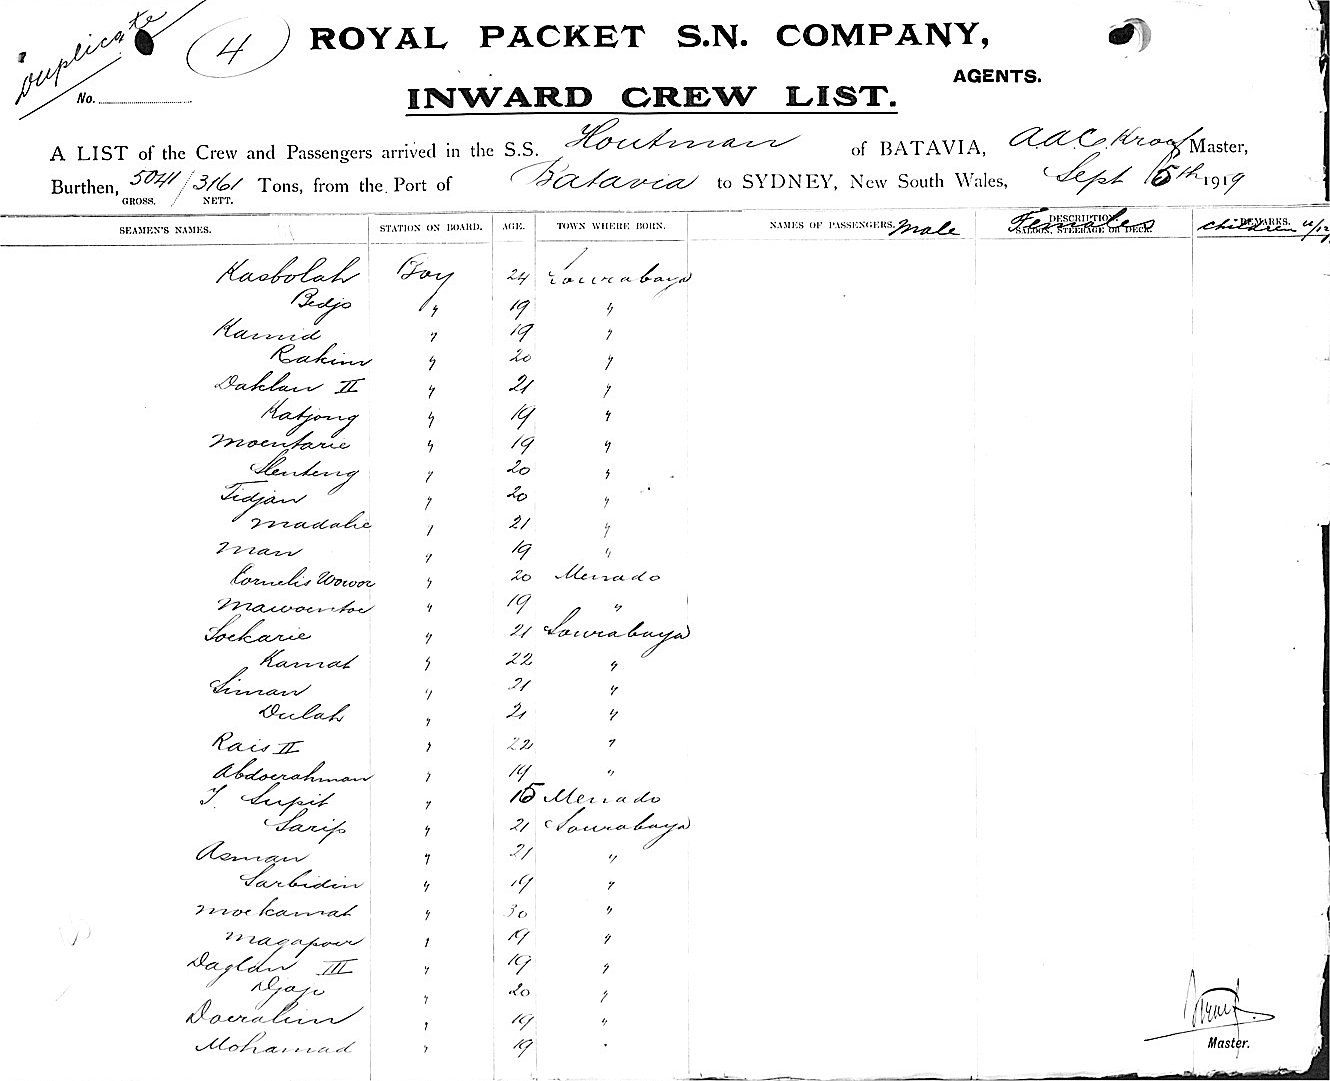 Duplicate
4
ROYAL PACKET S.N. COMPANY,
AGENTS.
No.
INWARD CREW LIST.
A LIST of the Crew and Passengers arrived in the S.S. Houtman of BATAVIA, AAC Kroef Master,
Burthen, 5041/3161 Tons, from the Port of Batavia to SYDNEY, New South Wales, Sept 15th 1919
GROSS. NETT.
SEAMEN'S NAMES. STATION ON BOARD. AGE. TOWN WHERE BORN. NAMES OF PASSENGERS. Male DESCRIPTION. SALOON, STEERAGE OR DECK. Females REMARKS. children
Kasbolah Boy 24 Sourabaya
Bedjo " 19 "
Kamid " 19 "
Rakim " 20 "
Dahlan II " 21 "
Katjong " 19 "
Moentarie " 19 "
Slenteng " 20 "
Tidjan " 20 "
Madalie " 21 "
Man " 19 "
Cornelis Wowor " 20 Menado
Mawoentoe " 19 "
Soekarie " 21 Sourabaya
Kamat " 22 "
Siman " 21 "
Dulah " 21 "
Rais II " 22 "
Abdoerahman " 19 "
J. Supit " 15 Menado
Sarip " 21 Sourabaya
Asman " 21 "
Sarbidin " 19 "
Moekamat " 30 "
Magapoer " 19 "
Daglan III " 19 "
Djajo " 20 "
Doeralim " 19 "
Mohamad " 19 "
Master.